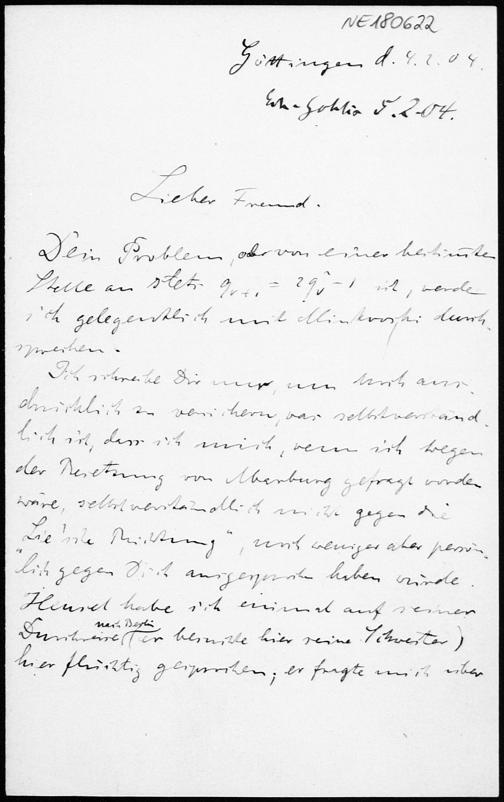 NE180622
Göttingen d. 4.2.04.
5.2.04.
Lieber Freund.
Dein Problem, ob von einer bestimten
Stelle an stets q_{ν+1} = 2q_ν² - 1 ist, werde
ich gelegentlich mit Minkowski durch-
sprechen.
Ich schreibe Dir nur, um noch aus-
drücklich zu versichern, was selbstverständ-
lich ist, dass ich mich, wenn ich wegen
der Besetzung von Marburg gefragt worden
wäre, selbstverständlich nicht gegen die
"Lie'sche Richtung", noch weniger aber persön-
lich gegen Dich ausgesprochen haben würde.
Hensel habe ich einmal auf seiner
Durchreise nach Berlin (er besuchte hier seine Schwester)
hier flüchtig gesprochen; er fragte mich über